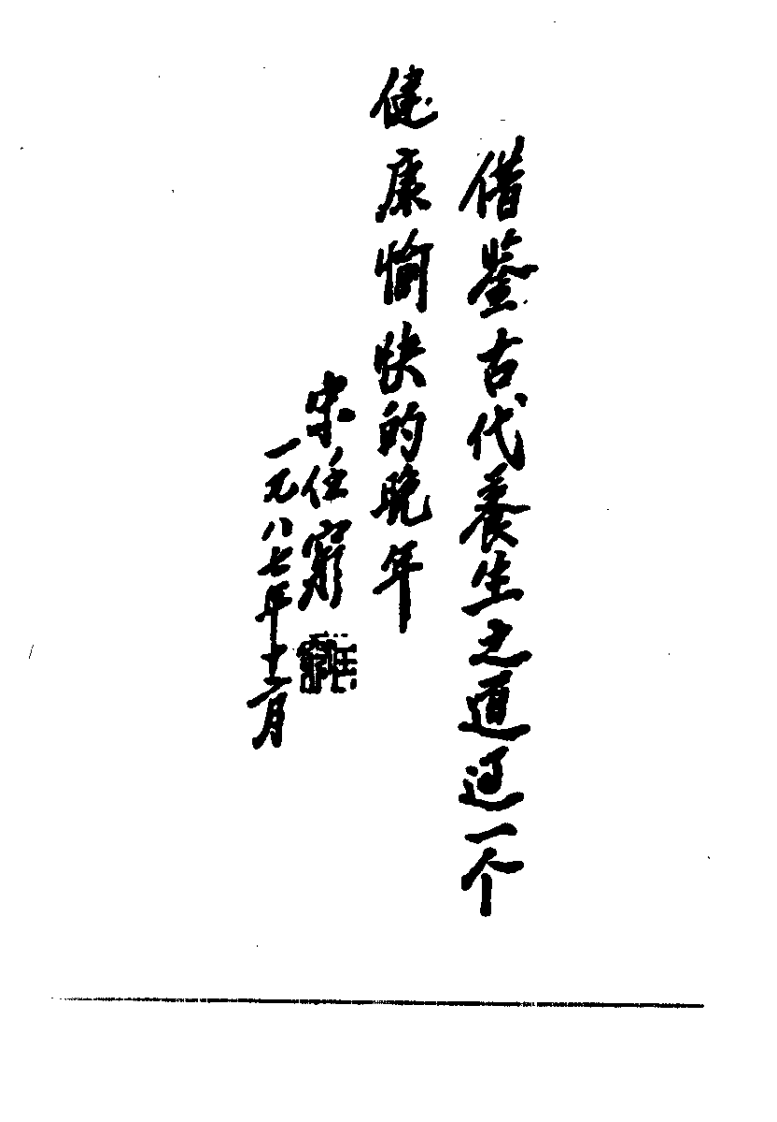 借鉴古代養生之道过一个
健康愉快的晚年
宋任窮
一九八七年十二月